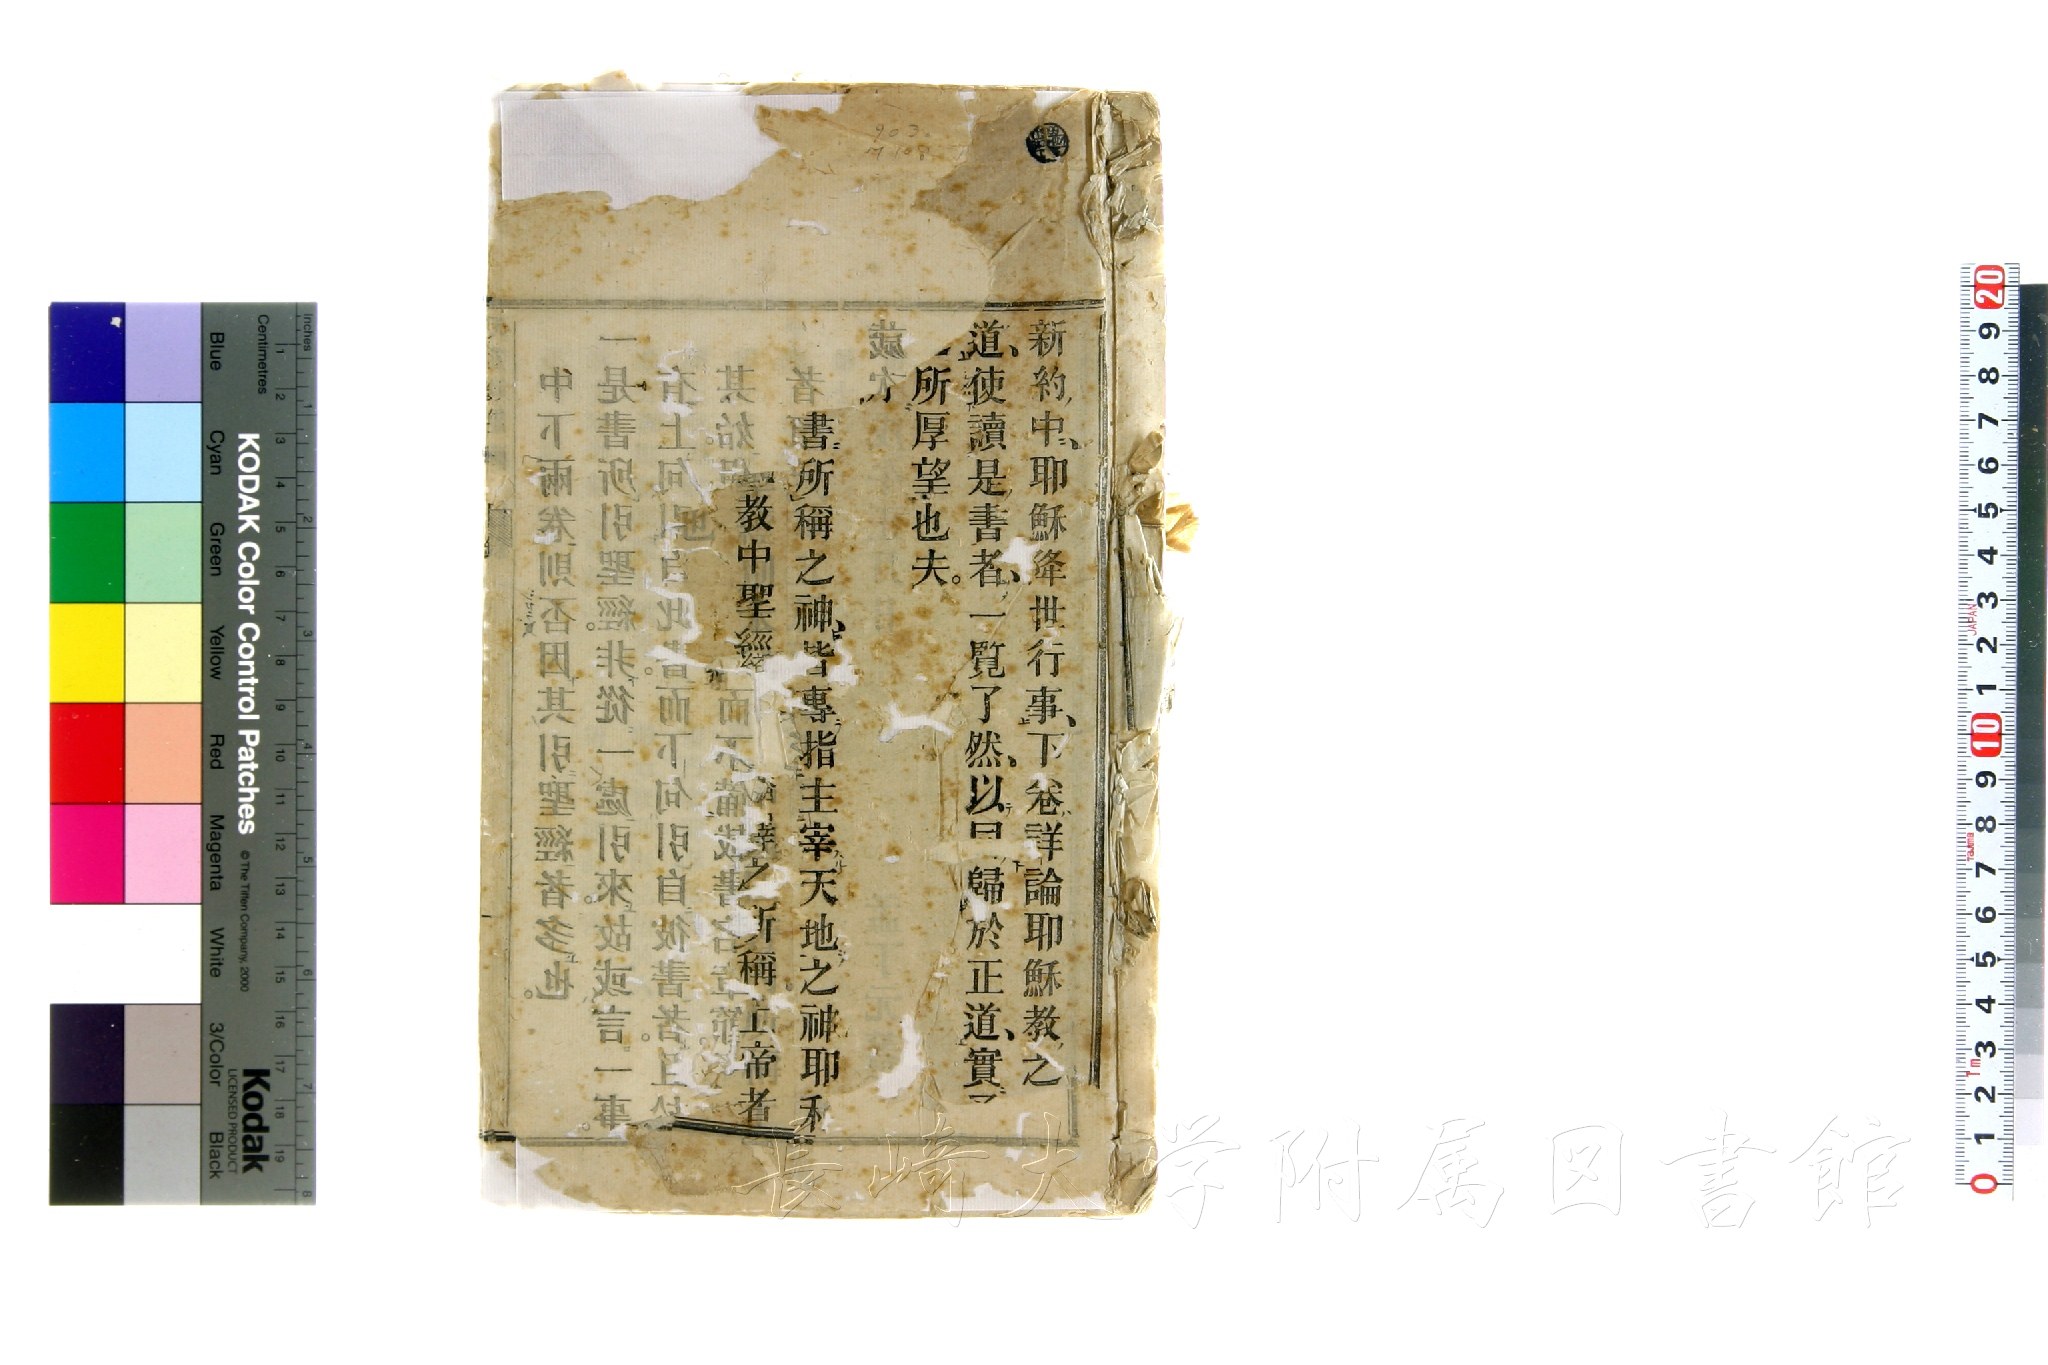 新約中、耶穌降世行事、下卷詳論耶穌教之
道、使讀是書者、一覽了然、以同歸於正道、實
所厚望也夫。
書所稱之神、皆專指主宰天地之神耶和
教中聖經 之所稱上帝者
歲次
者
其始 也 而不備載書名章節
有上句引自此書而下句引自彼書者。且於
一是書所引聖經。非從一處引來。故或言一事。
中下兩卷則否因其引聖經者多也。
903.
M 108
KODAK Color Control Patches
© The Tiffen Company, 2000
Kodak
LICENSED PRODUCT
Inches
Centimetres
Blue
Cyan
Green
Yellow
Red
Magenta
White
3/Color
Black
1 2 3 4 5 6 7 8
1 2 3 4 5 6 7 8 9 10 11 12 13 14 15 16 17 18 19
20 9 8 7 6 5 4 3 2 1 10 9 8 7 6 5 4 3 2 1 0
JAPAN
長崎大学附属図書館